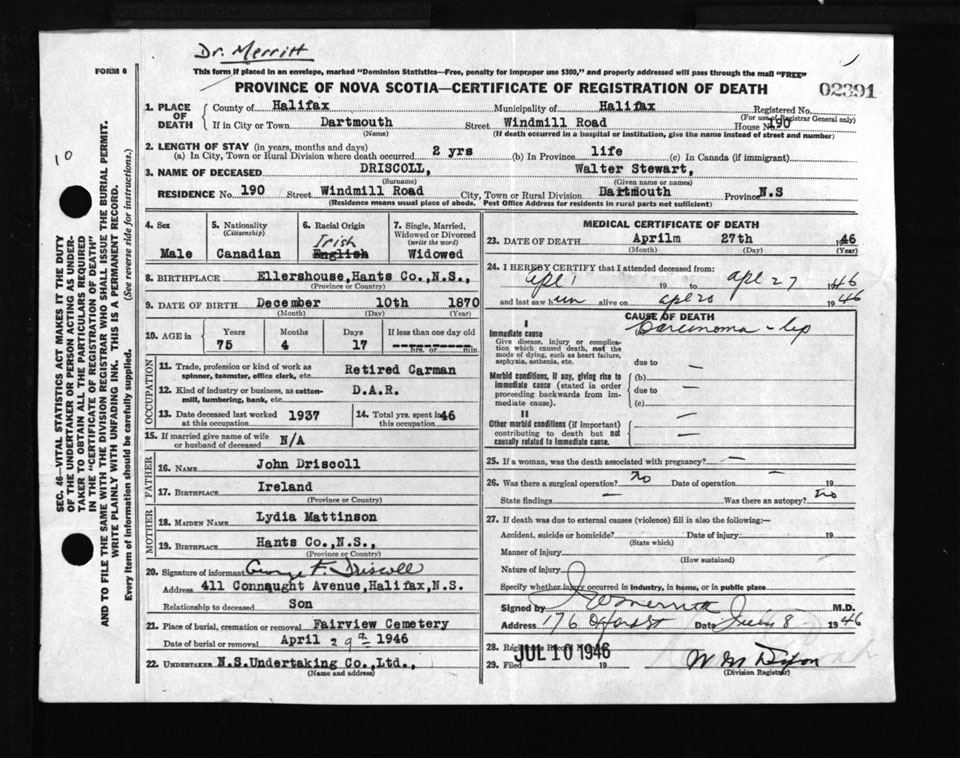 Dr. Merritt
FORM 6
This form if placed in an envelope, marked "Dominion Statistics—Free, penalty for improper use $300," and properly addressed will pass through the mail "FREE"
PROVINCE OF NOVA SCOTIA—CERTIFICATE OF REGISTRATION OF DEATH
02391
1. PLACE OF DEATH
County of Halifax Municipality of Halifax Registered No.
(For use of Registrar General only)
If in City or Town Dartmouth Street Windmill Road House No. 190
(Name) (If death occurred in a hospital or institution, give the name instead of street and number)
2. LENGTH OF STAY (in years, months and days)
(a) In City, Town or Rural Division where death occurred 2 yrs (b) In Province life (c) In Canada (if immigrant)
3. NAME OF DECEASED DRISCOLL, Walter Stewart,
(Surname) (Given name or names)
RESIDENCE No. 190 Street Windmill Road City, Town or Rural Division Dartmouth Province N.S
(Residence means usual place of abode. Post Office Address for residents in rural parts not sufficient)
4. Sex
Male
5. Nationality
(Citizenship)
Canadian
6. Racial Origin
Irish
English
7. Single, Married, Widowed or Divorced
(write the word)
Widowed
8. BIRTHPLACE Ellershouse,Hants Co.,N.S.,
(Province or Country)
9. DATE OF BIRTH December 10th 1870
(Month) (Day) (Year)
10. AGE in Years Months Days If less than one day old
75 4 17 ---------- hrs. or min.
OCCUPATION
11. Trade, profession or kind of work as spinner, teamster, office clerk, etc. Retired Carman
12. Kind of industry or business, as cotton-mill, lumbering, bank, etc. D.A.R.
13. Date deceased last worked at this occupation 1937
14. Total yrs. spent in this occupation 46
15. If married give name of wife or husband of deceased N/A
FATHER
16. NAME John Driscoll
17. BIRTHPLACE Ireland
(Province or Country)
MOTHER
18. MAIDEN NAME Lydia Mattinson
19. BIRTHPLACE Hants Co.,N.S.,
(Province or Country)
20. Signature of informant George F. Driscoll
Address 411 Connaught Avenue,Halifax,N.S.
Relationship to deceased Son
21. Place of burial, cremation or removal Fairview Cemetery
Date of burial or removal April 29 1946
22. UNDERTAKER N.S.Undertaking Co.,Ltd.,
(Name and address)
MEDICAL CERTIFICATE OF DEATH
23. DATE OF DEATH Aprilm 27th 1946
(Month) (Day) (Year)
24. I HEREBY CERTIFY that I attended deceased from:
Apl 1 19 to Apl 27 1946
and last saw him alive on apl 20 1946
CAUSE OF DEATH
I
Immediate cause (a) Carcinoma - lip
Give disease, injury or complication which caused death, not the mode of dying, such as heart failure, asphyxia, asthenia, etc.
due to —
Morbid conditions, if any, giving rise to immediate cause (stated in order proceeding backwards from immediate cause).
(b)
due to —
(c)
II
Other morbid conditions (if important) contributing to death but not causally related to immediate cause.
—
—
25. If a woman, was the death associated with pregnancy? —
26. Was there a surgical operation? no Date of operation — 19
State findings — Was there an autopsy? no
27. If death was due to external causes (violence) fill in also the following:—
Accident, suicide or homicide? Date of injury 19
(State which)
Manner of injury
(How sustained)
Nature of injury
Specify whether injury occurred in industry, in home, or in public place
Signed by Merritt M.D.
Address 176 Date July 8 1946
28.
JUL 10 1946
29. Filed 19
W M Dixon
(Division Registrar)
10
SEC. 46—VITAL STATISTICS ACT MAKES IT THE DUTY
OF THE UNDERTAKER OR PERSON ACTING AS UNDER-
TAKER TO OBTAIN ALL THE PARTICULARS REQUIRED
IN THE "CERTIFICATE OF REGISTRATION OF DEATH"
AND TO FILE THE SAME WITH THE DIVISION REGISTRAR WHO SHALL ISSUE THE BURIAL PERMIT.
WRITE PLAINLY WITH UNFADING INK. THIS IS A PERMANENT RECORD.
Every item of information should be carefully supplied. (See reverse side for instructions.)